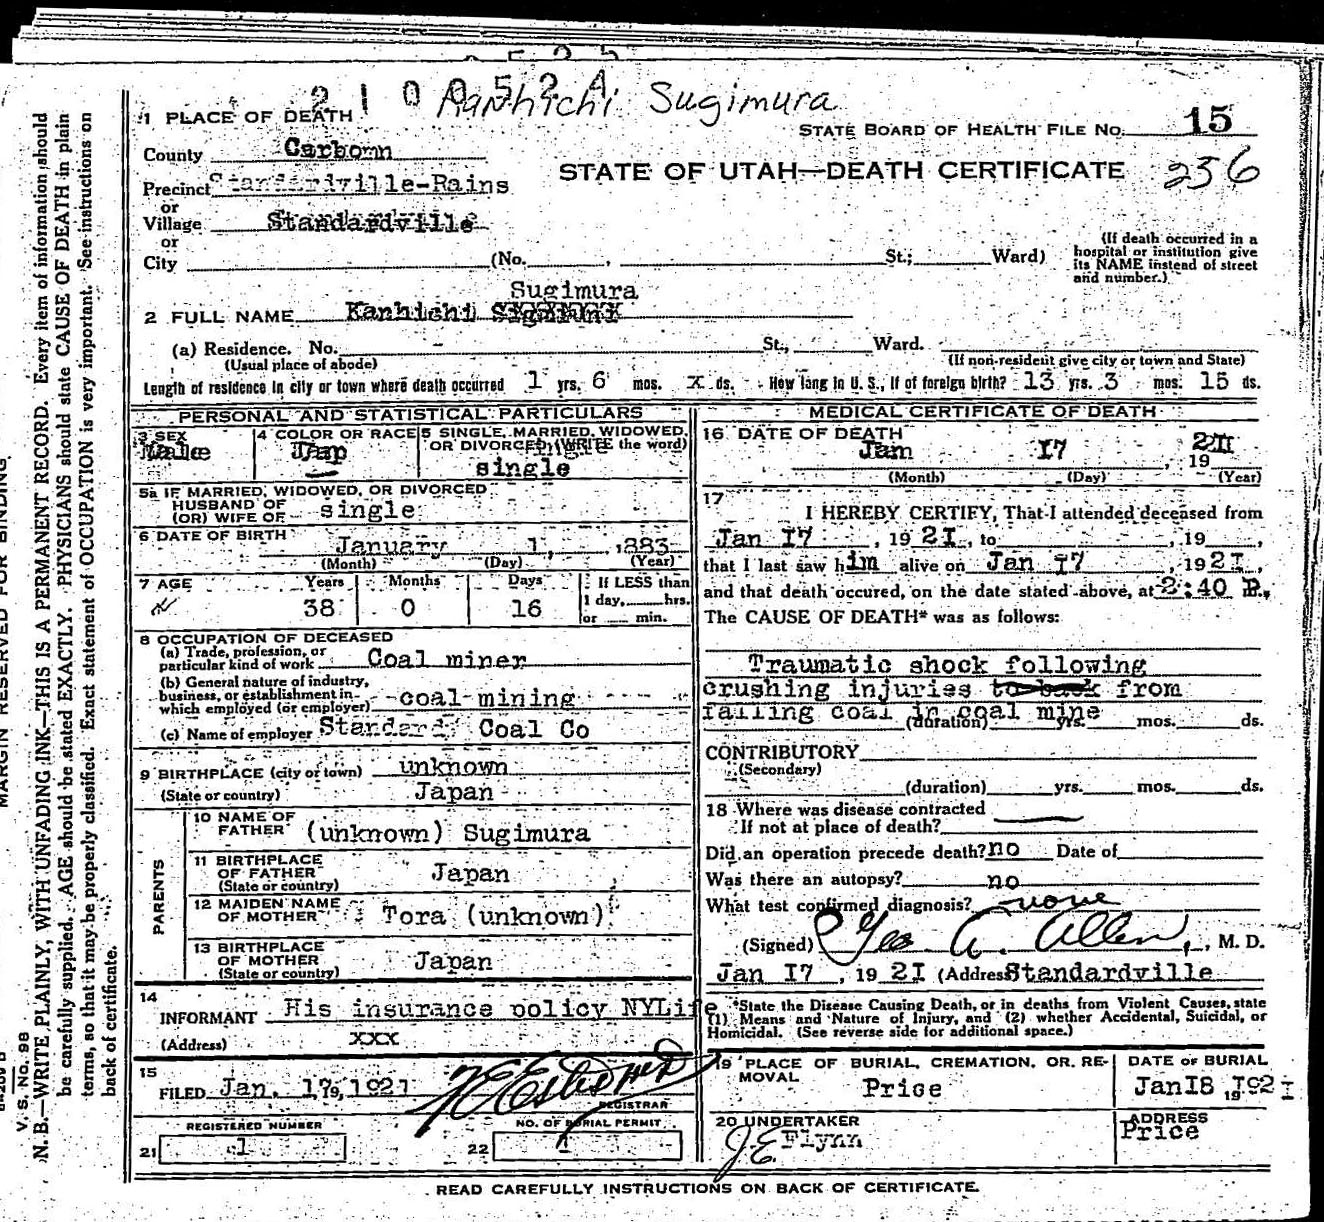 2 1 0 0 5 2 A
Kanhichi Sugimura
1 PLACE OF DEATH
STATE BOARD OF HEALTH FILE NO. 15
County Carbonn
STATE OF UTAH—DEATH CERTIFICATE 256
Precinct Standardville-Rains
or
Village Standardville
or
City (No. , St.; Ward)
(If death occurred in a
hospital or institution give
its NAME instead of street
and number.)
Sugimura
2 FULL NAME Kanhichi
(a) Residence. No. St., Ward.
(Usual place of abode) (If non-resident give city or town and State)
Length of residence in city or town where death occurred 1 yrs. 6 mos. x ds. How long in U. S., if of foreign birth? 13 yrs. 3 mos. 15 ds.
PERSONAL AND STATISTICAL PARTICULARS
3 SEX
Male
4 COLOR OR RACE
Jap
5 SINGLE, MARRIED, WIDOWED,
OR DIVORCED (WRITE the word)
single
5a IF MARRIED, WIDOWED, OR DIVORCED
HUSBAND OF
(OR) WIFE OF single
6 DATE OF BIRTH January 1, 1883
(Month) (Day) (Year)
7 AGE Years Months Days If LESS than
38 0 16 1 day, hrs.
or min.
8 OCCUPATION OF DECEASED
(a) Trade, profession, or
particular kind of work Coal miner
(b) General nature of industry,
business, or establishment in
which employed (or employer) coal mining
(c) Name of employer Standard Coal Co
9 BIRTHPLACE (city or town) unknown
(State or country) Japan
PARENTS
10 NAME OF
FATHER (unknown) Sugimura
11 BIRTHPLACE
OF FATHER Japan
(State or country)
12 MAIDEN NAME
OF MOTHER Tora (unknown)
13 BIRTHPLACE
OF MOTHER Japan
(State or country)
14
INFORMANT His insurance policy NYLife
(Address) xxx
15
FILED Jan. 17, 19, 1921
REGISTRAR
REGISTERED NUMBER
21 1
NO. OF BURIAL PERMIT
22 1
MEDICAL CERTIFICATE OF DEATH
16 DATE OF DEATH
Jan 17 , 19 21
(Month) (Day) (Year)
17
I HEREBY CERTIFY, That I attended deceased from
Jan 17 , 19 21, to , 19 ,
that I last saw him alive on Jan 17 , 19 21,
and that death occured, on the date stated above, at 2:40 P.,
The CAUSE OF DEATH* was as follows:
Traumatic shock following
crushing injuries to back from
falling coal in coal mine
(duration) yrs. mos. ds.
CONTRIBUTORY
(Secondary)
(duration) yrs. mos. ds.
18 Where was disease contracted
If not at place of death?
Did an operation precede death? no Date of
Was there an autopsy? no
What test confirmed diagnosis? none
(Signed) Geo A. Allen, M. D.
Jan 17 , 19 21 (Address Standardville
*State the Disease Causing Death, or in deaths from Violent Causes, state
(1) Means and Nature of Injury, and (2) whether Accidental, Suicidal, or
Homicidal. (See reverse side for additional space.)
19 PLACE OF BURIAL, CREMATION, OR RE-
MOVAL
Price
DATE OF BURIAL
Jan 18 , 1921
20 UNDERTAKER
J.E. Flynn
ADDRESS
Price
READ CAREFULLY INSTRUCTIONS ON BACK OF CERTIFICATE.
MARGIN RESERVED FOR BINDING
V. S. No. 98
N. B.—WRITE PLAINLY, WITH UNFADING INK—THIS IS A PERMANENT RECORD. Every item of information should
be carefully supplied. AGE should be stated EXACTLY. PHYSICIANS should state CAUSE OF DEATH in plain
terms, so that it may be properly classified. Exact statement of OCCUPATION is very important. See instructions on
back of certificate.